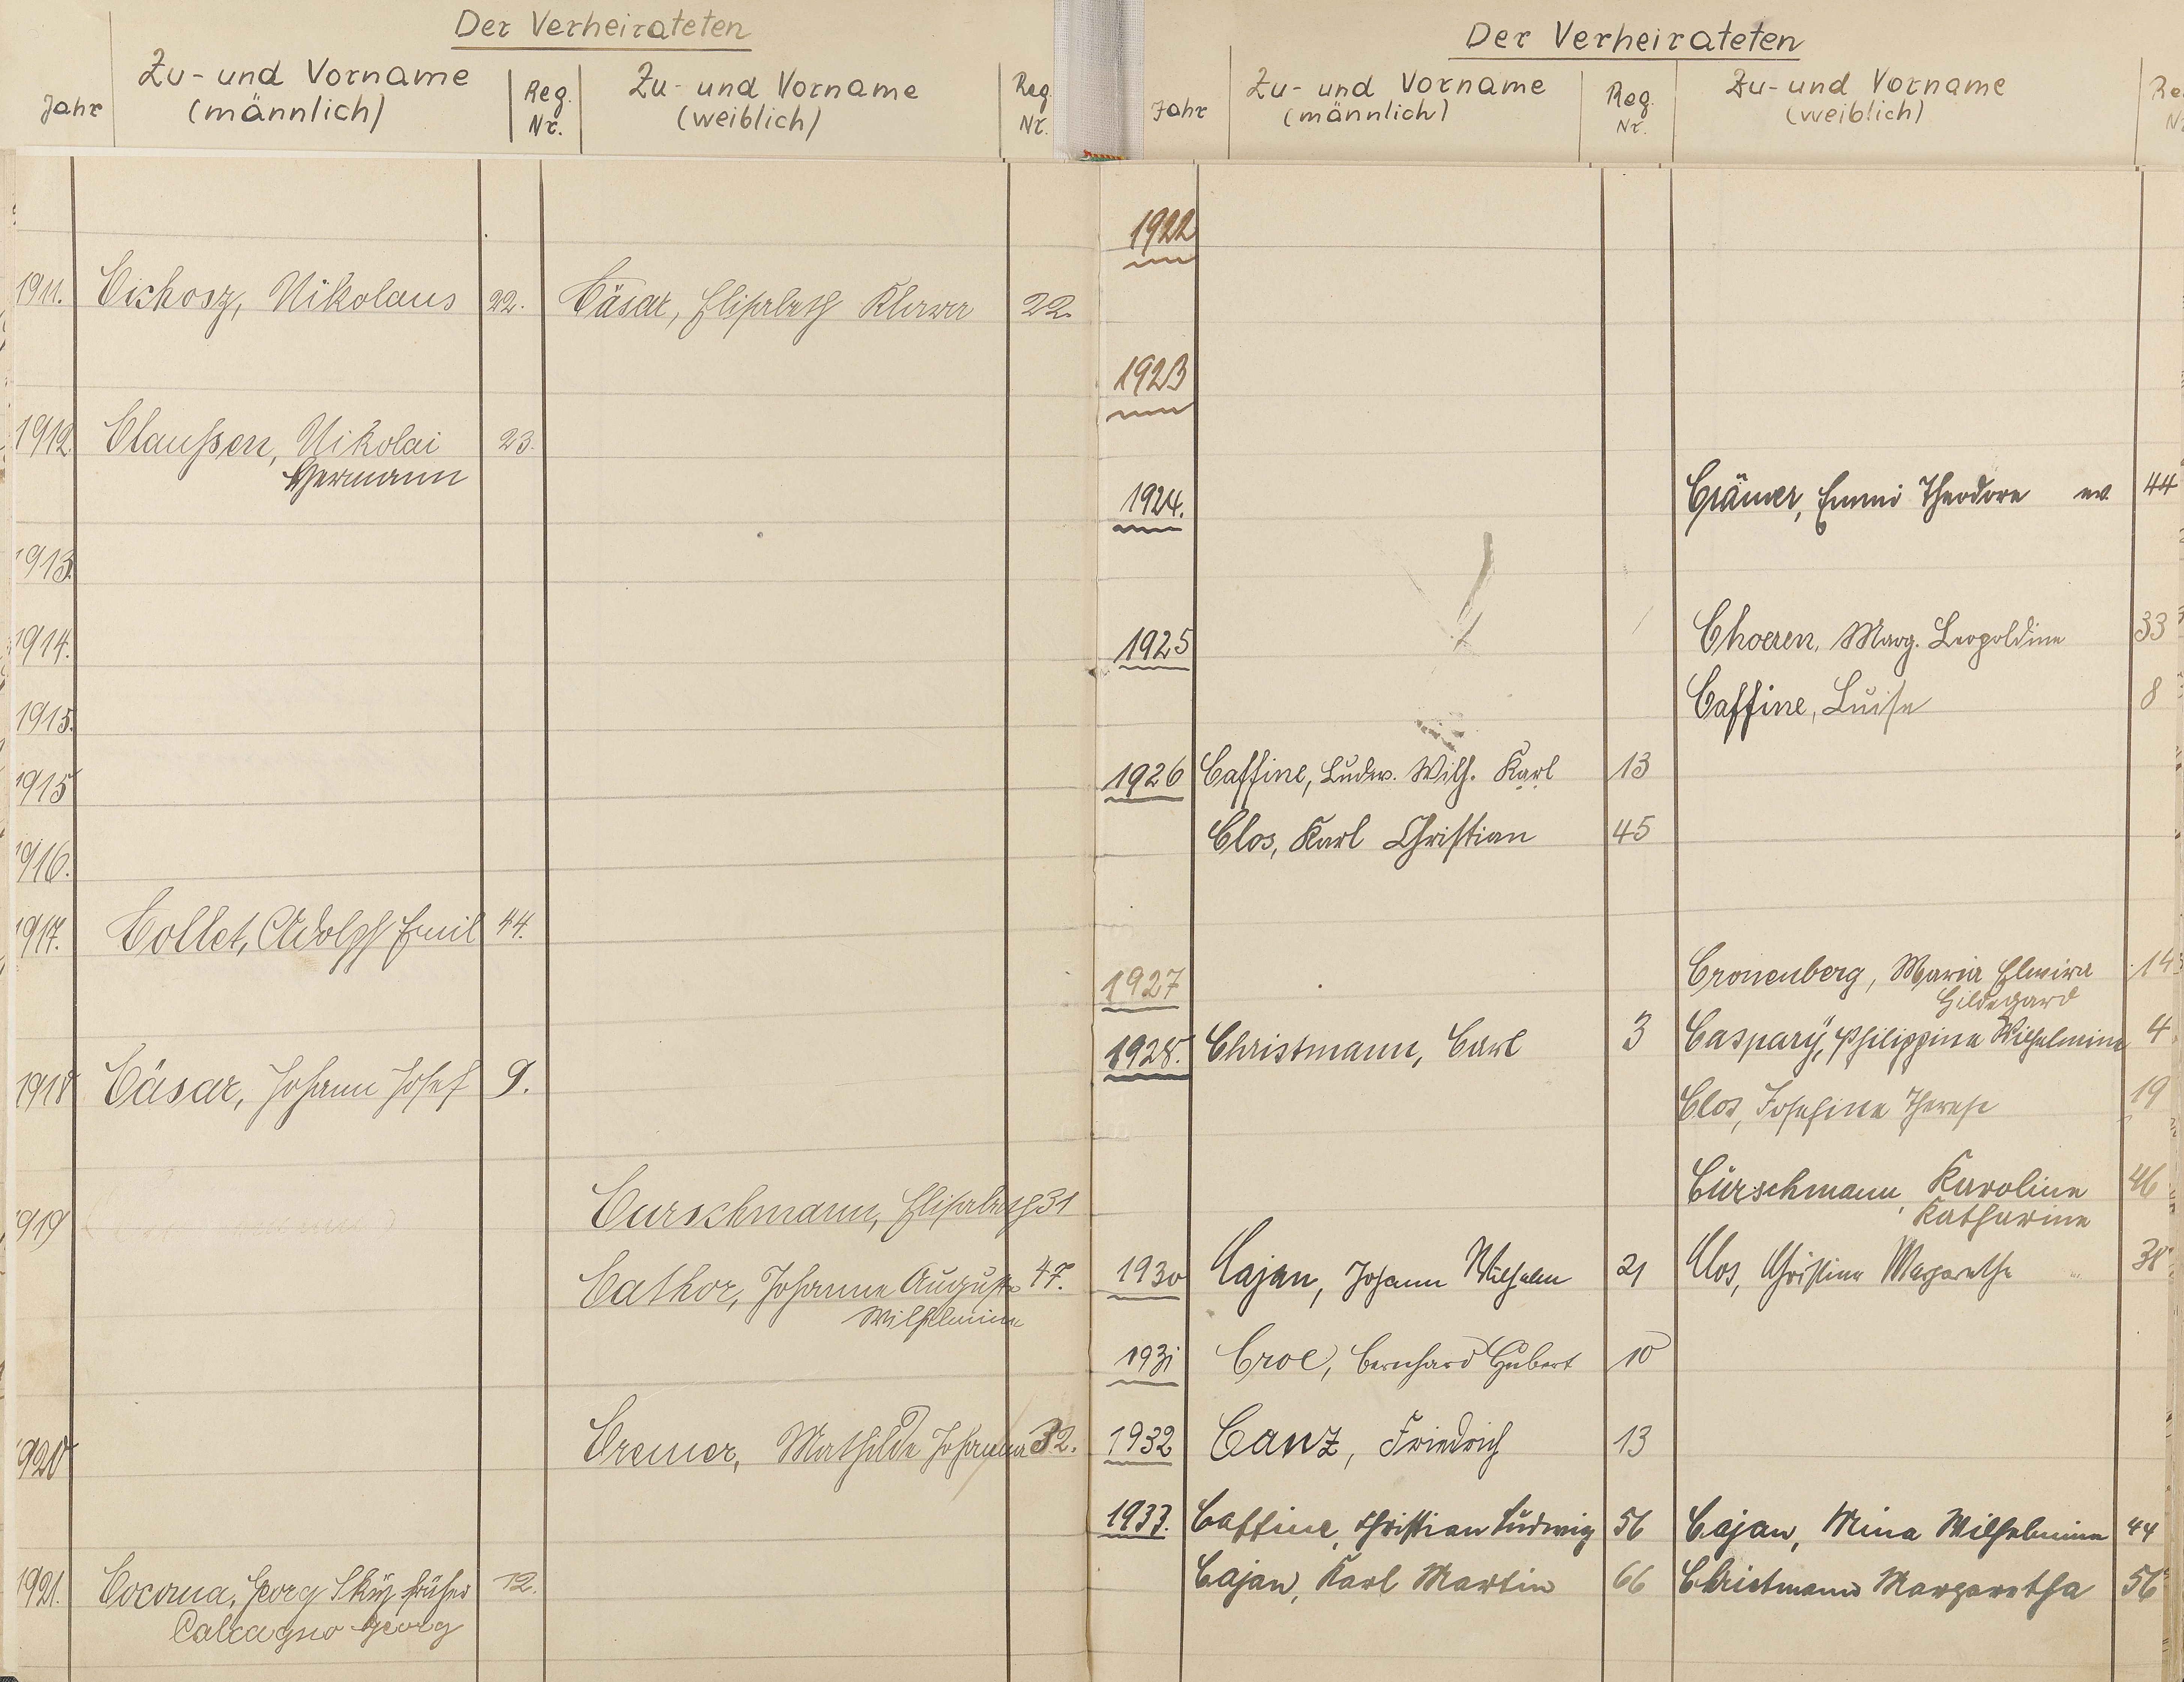 Der Verheirateten
Jahr
Zu- und Vorname
(männlich)
Reg.
Nr.
Zu- und Vorname
(weiblich)
Reg.
Nr.
1911. Cichosz, Nikolaus 22. Cäsar, Elisabeth Klara 22.
1912. Claussen, Nikolai 23.
Hermann
1913.
1914.
1915.
1915
1916.
1917. Collet, Adolph Emil 44.
1918 Cäsar, Johann Josef 9.
1919 Curschmann, Elisabeth 31
Cathor, Johanne Auguste 47.
Wilhelmine
1920 Cremer, Mathilde Johanna 32.
1921. Georg früher 12.
Calcagno Georg
Der Verheirateten
Jahr
Zu- und Vorname
(männlich)
Reg.
Nr.
Zu- und Vorname
(weiblich)
1922
1923
1924. Crämer, Emmi Theodore ev. 44
1925 Choeren, Marg. Leopoldine 33
Caffine, Luise 8
1926 Caffine, Ludw. Wilh. Karl 13
Clos, Karl Christian 45
1927 Cronenberg, Maria Elmira 14
Hildegard
1928. Christmann, Carl 3 Caspary, Philippina Wilhelmine 4
Clos, Josefine Therese 19
Cürschmann, Karoline 46
Katharine
1930 Cajan, Johann Wilhelm 21 Clos, Christine Margarethe 38
1931 Croe, Bernhard Hubert 10
1932 Canz, Friedrich 13
1933. Caffine, Christian Ludwig 56 Cajan, Mina Wilhelmine 44
Cajan, Karl Martin 66 Christmann Margaretha 56